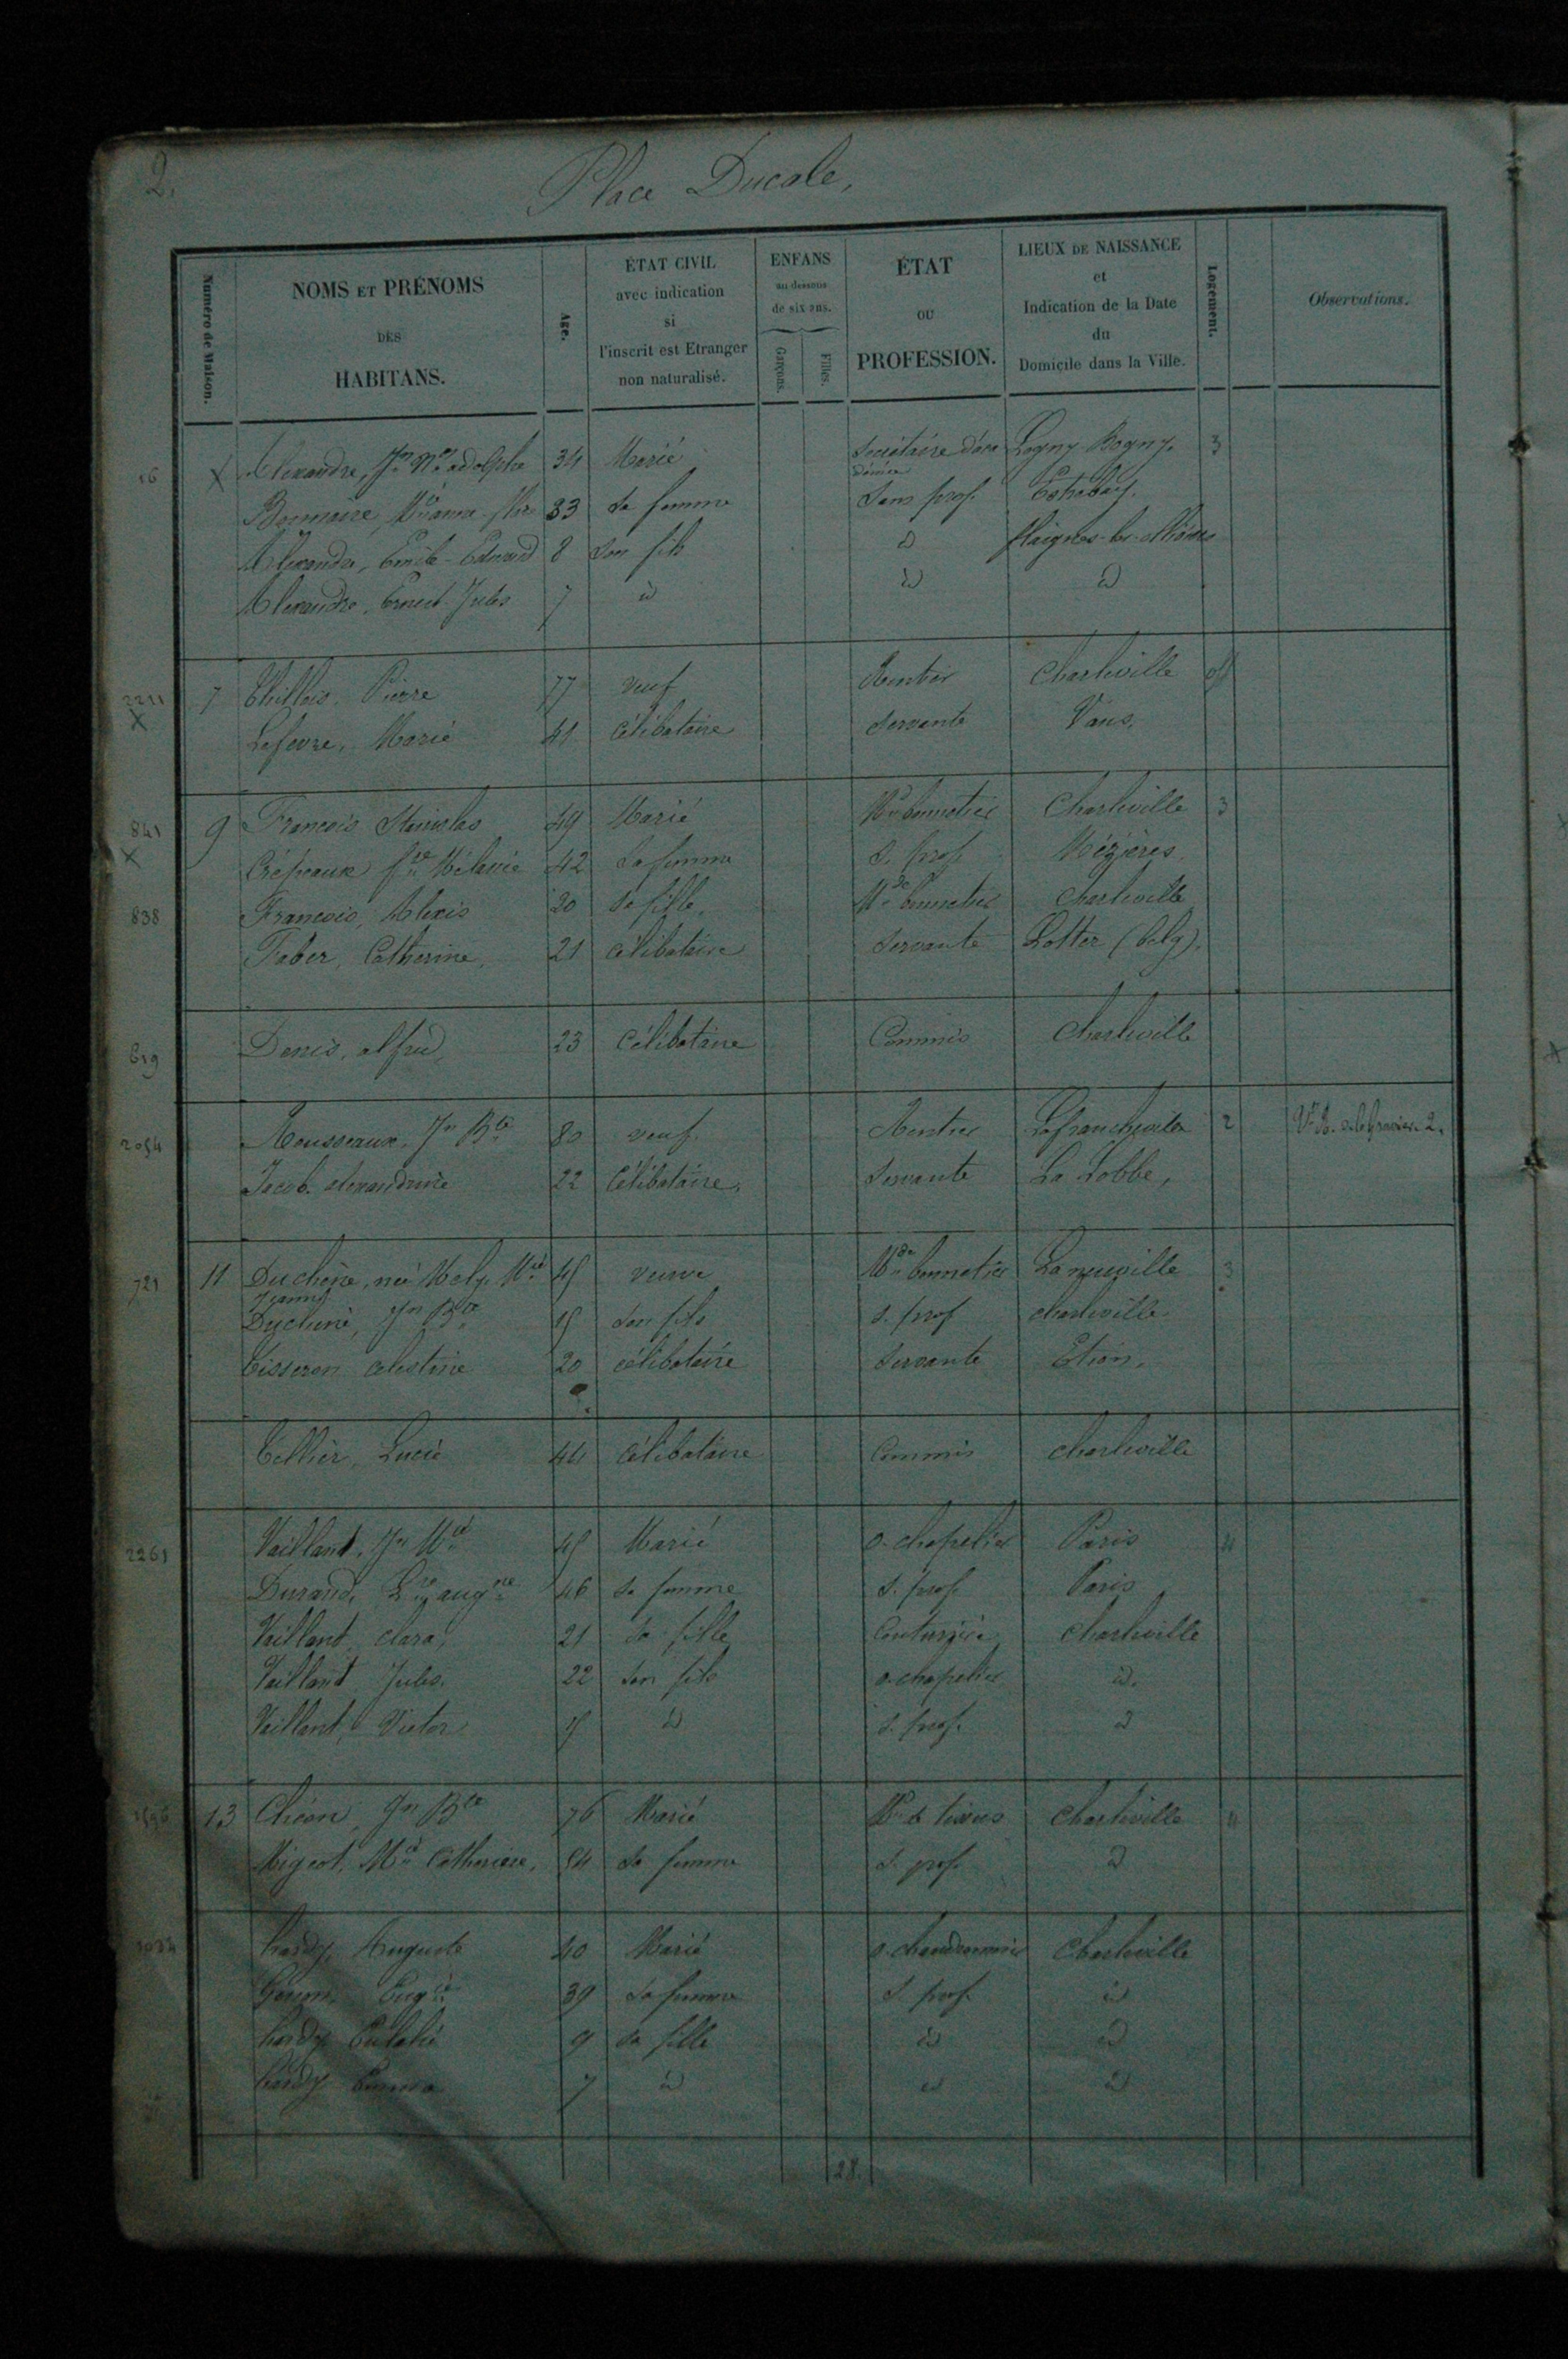 2.
Place Ducale,
Numéro de Maison.
NOMS ET PRÉNOMS DES HABITANS.
Age.
ÉTAT CIVIL avec indication si l'inscrit est Etranger non naturalisé.
ENFANS au dessous de six ans.
Garçons.
Filles.
ÉTAT OU PROFESSION.
LIEUX DE NAISSANCE et Indication de la Date du Domicile dans la Ville.
Logement.
Observations.
16 X Alexandre, Jn Nas adolphe 34 Marié Secrétaire d'aca démie Logny Bogny. 3
anne 33 Sa femme Sans prof. Estrebay.
Alexandre, Emile-Edouard 8 Son fils id flaignes-les-
Alexandre, Ernest-Jules 7 id id id
2211 X 7 Thillois, Pierre 77 veuf Rentier Charleville
Lefevre, Marie 41 célibataire Servante
841 X 9 François Stanislas 49 Marié Md bonnetier Charleville 3
Crépeaux Mélanie 42 Sa femme S. prof. Mézières.
838 François, Alexis 20 Sa fille, Mde bonnetier Charleville
Faber, Catherine, 21 célibataire Servante (belg).
619 Denis, alfred, 23 Célibataire Commis Charleville
2054 Mousseaux, Jn Bte 80 veuf. Rentier 2
Jacob. alexandrine 22 Célibataire, Servante La Lobbe,
721 11 Duchêne, née Mie 45 veuve Mde bonnetier Laneuville 3
Duchêne, Jn Bte 15 Son fils S. prof charleville
Tisseron celestine 20 célibataire Servante Etion,
Tellier, Lucie 44 Célibataire Commis Charleville
2261 Vaillant, Jn 45 Marié o. chapelier Paris 4
Durand, augne 46 Sa femme S. prof. Paris
Vaillant, clara, 21 Sa fille Couturière Charleville
Vaillant Jules. 22 Son fils o. chapelier id.
Vaillant, Victor 15 id S. prof. id
13 Jn Bte 76 Marié Charleville 4
Migeot, Mie Catherine, 54 Sa femme S. prof. id
hardy, Auguste 40 Marié o. chaudronnier Charleville
39 Sa femme S. prof. id
hardy Eulalie 9 Sa fille id id
hardy Emma 7 id id id
28.